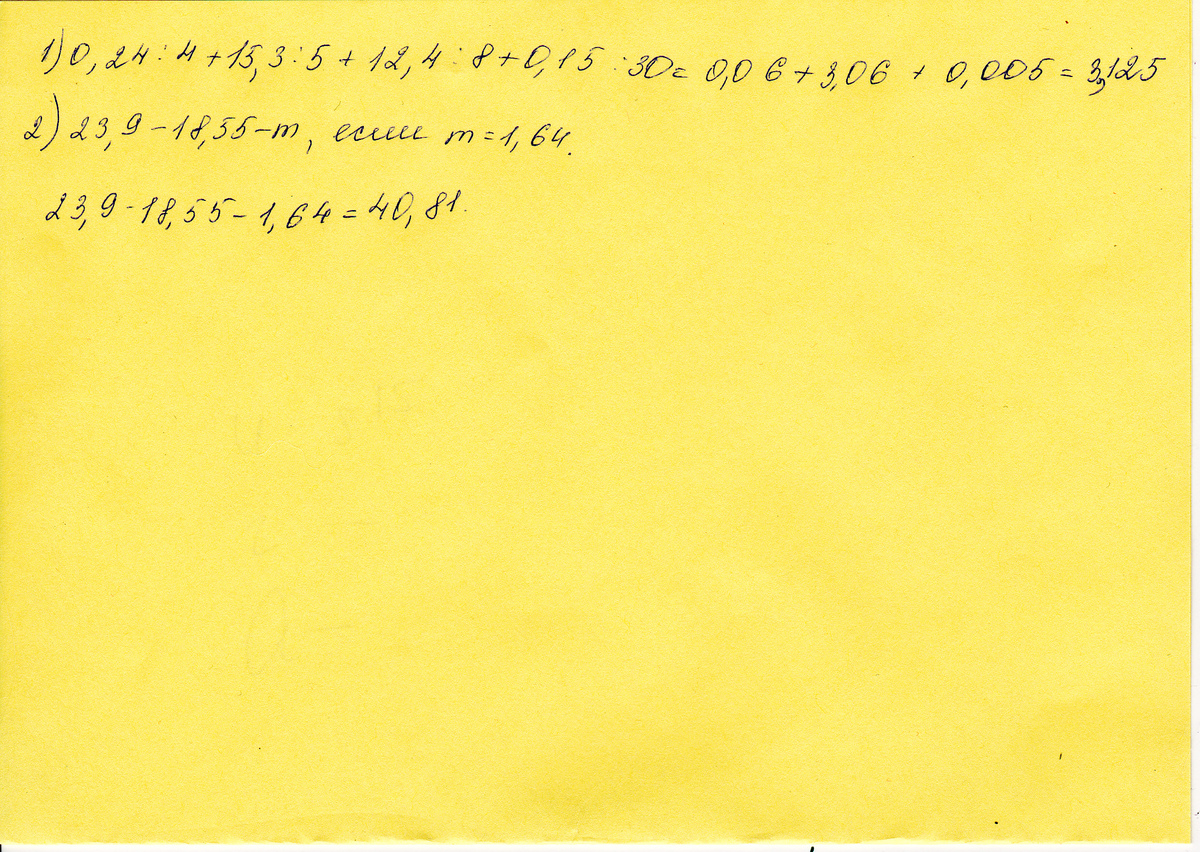 1) 0,24 : 4 + 15,3 : 5 + 12,4 : 8 + 0,15 : 30 = 0,06 + 3,06 + 0,005 = 3,125
2) 23,9 - 18,55 - m, если m = 1,64.
23,9 - 18,55 - 1,64 = 40,81.